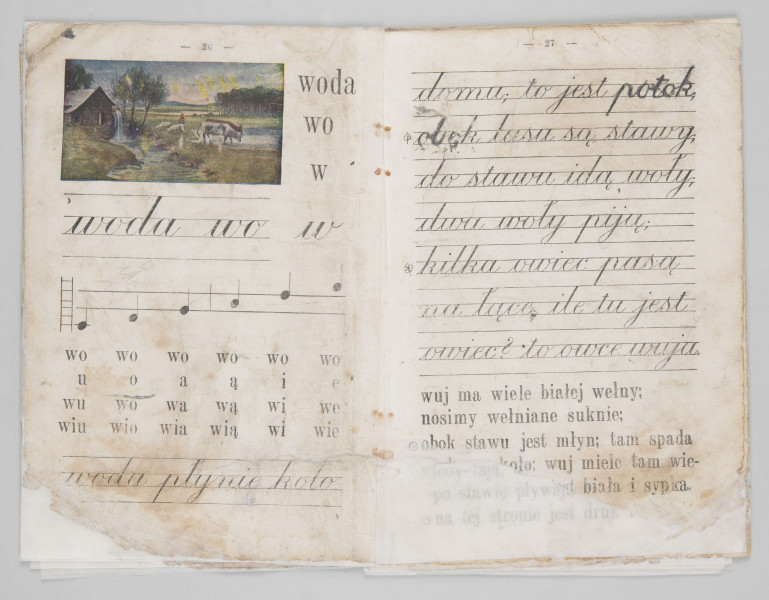 — 26 —
woda
wo
w
woda wo w
wo wo wo wo wo wo
u o a ą i e
wu wo wa wą wi we
wiu wio wia wią wi wie
woda płynie koło
— 27 —
domu; to jest potok;
obok lasu są stawy;
do stawu idą woły;
dwa woły piją;
kilka owiec pasą
na łące; ile tu jest
owiec? to owce wuja.
wuj ma wiele białej wełny;
nosimy wełniane suknie;
obok stawu jest młyn; tam spada
koło; wuj miele tam wie-
po stawie pływają biała i sypka.
na tej stronie jest druk